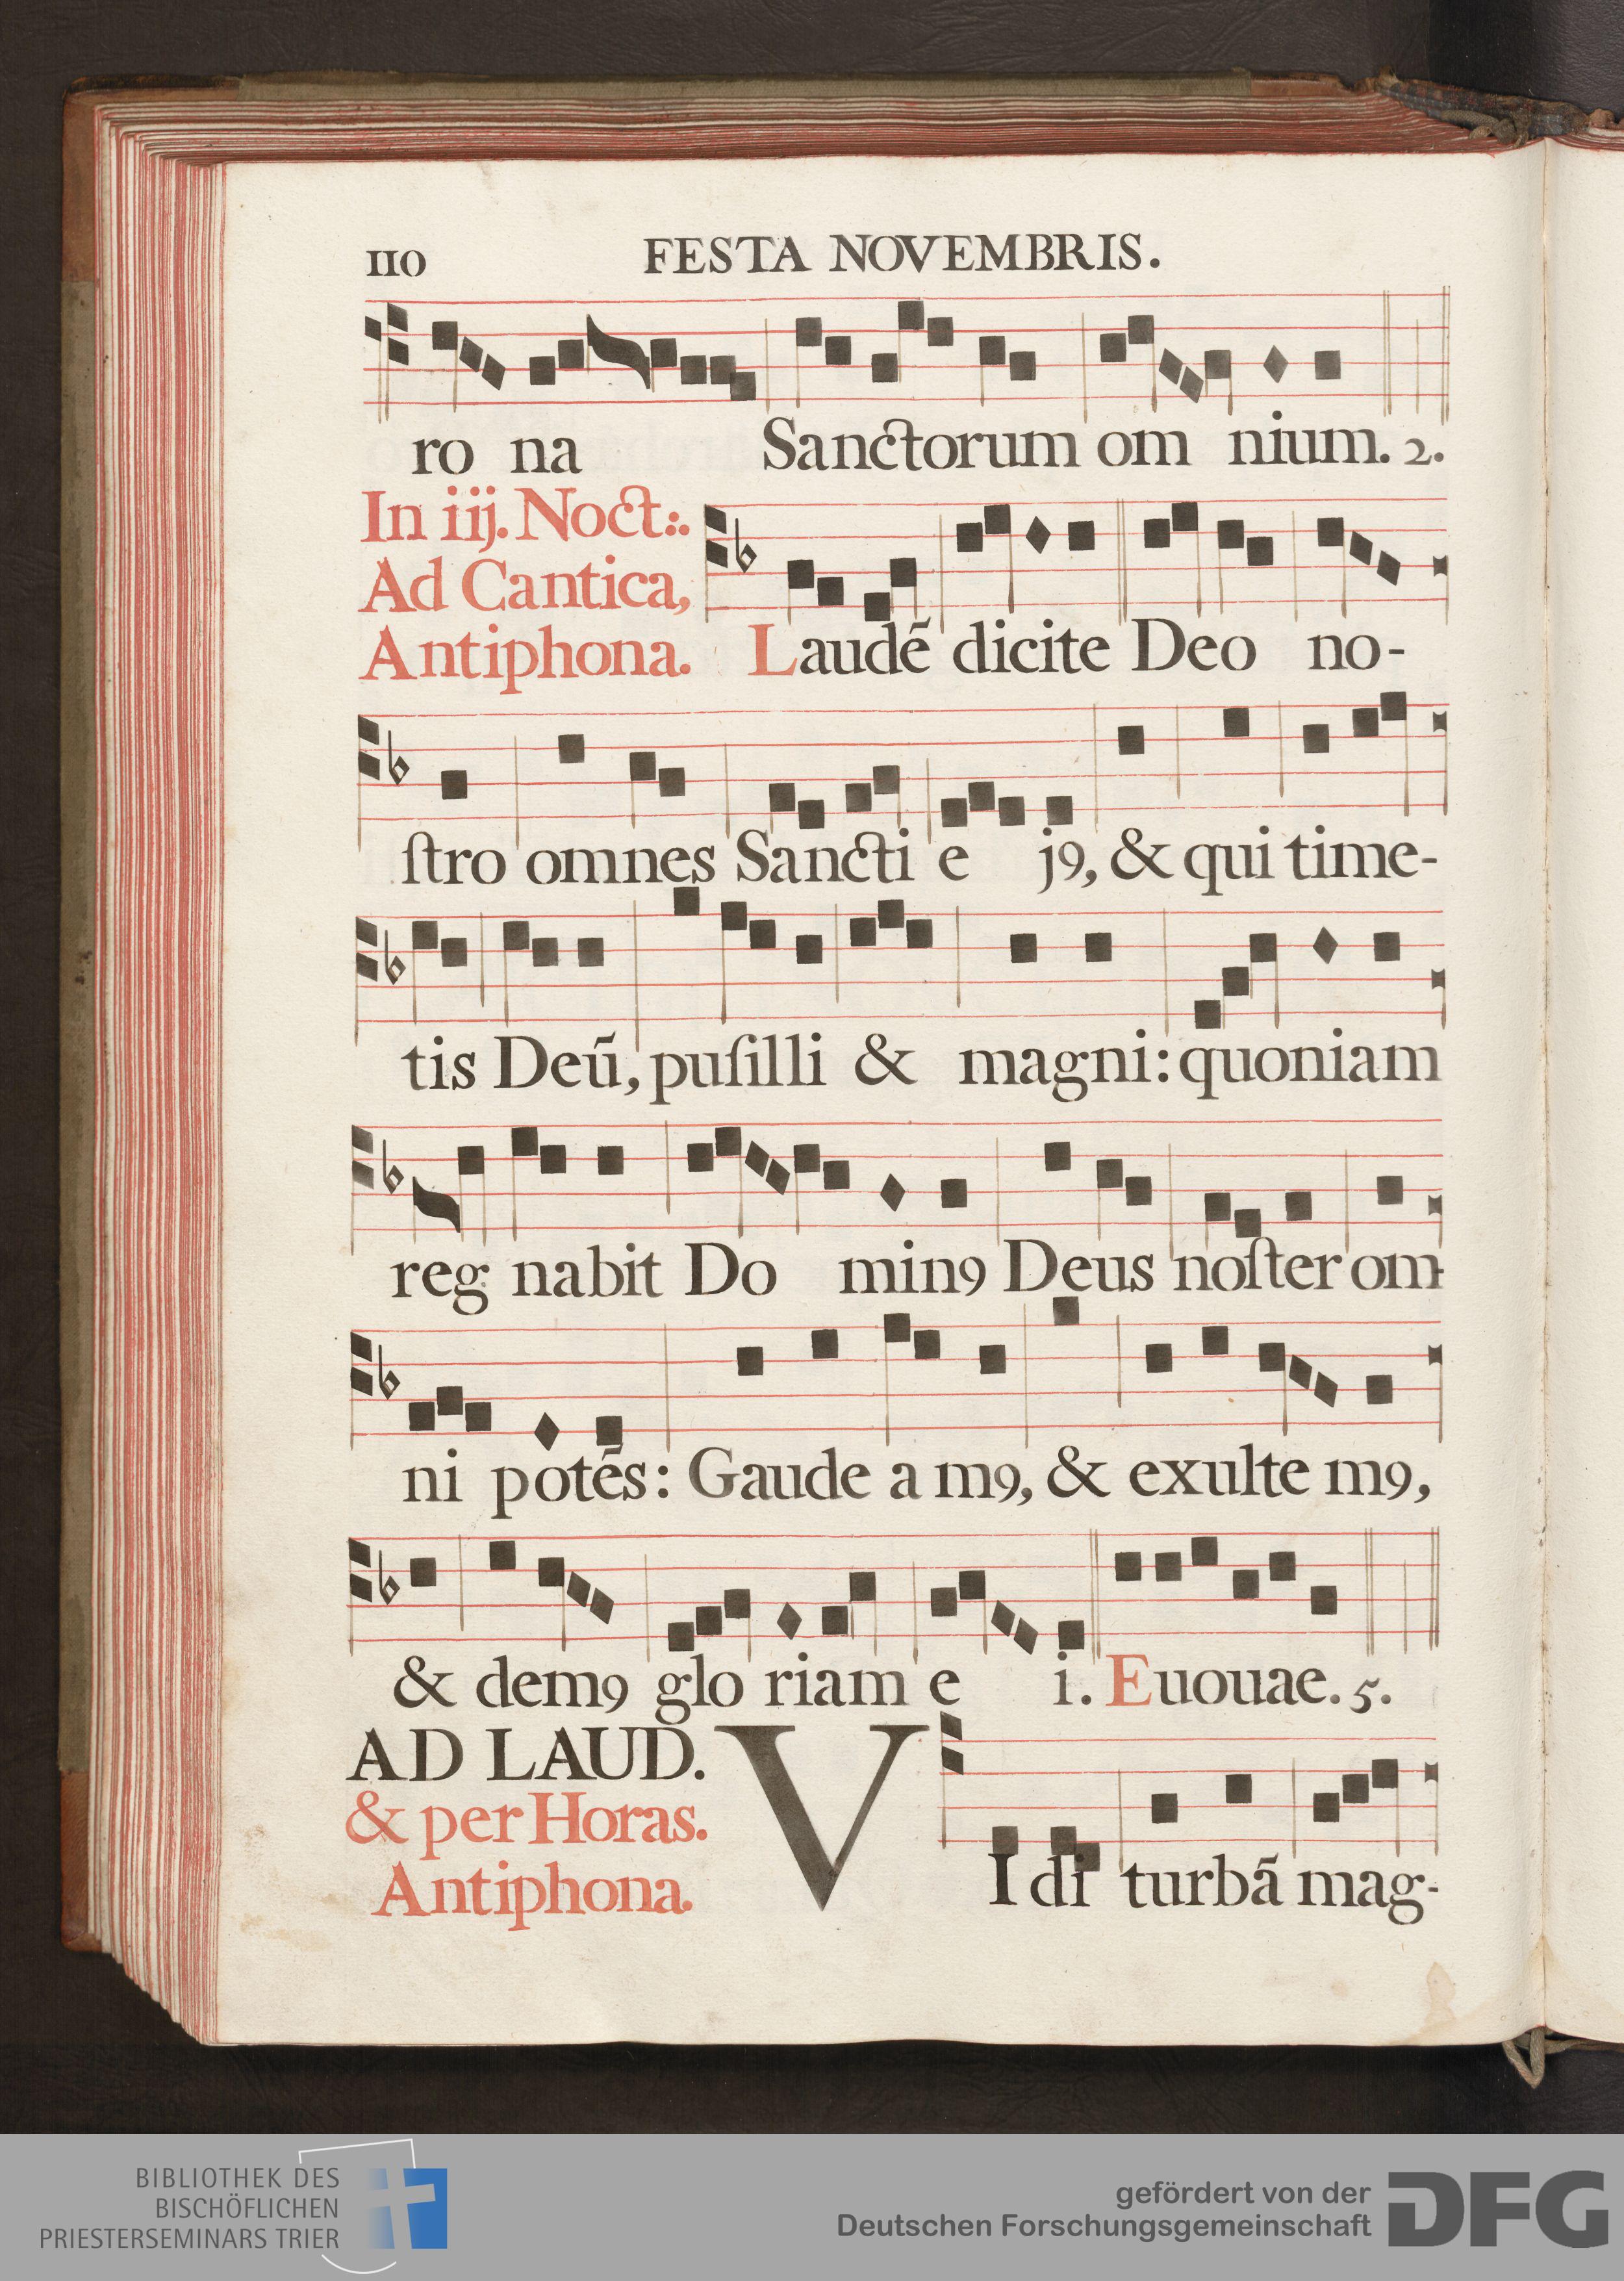 110 FESTA NOVEMBRIS.
ro na Sanctorum om nium. 2.
In iij. Noct:.
Ad Cantica,
Antiphona. Laudē dicite Deo no-
ſtro omnes Sancti e jꝯ, & qui time-
tis Deū, puſilli & magni: quoniam
reg nabit Do minꝯ Deus noſter om-
ni potēs: Gaude a mꝯ, & exulte mꝯ,
& demꝯ glo riam e i. Euouae. 5.
AD LAUD.
& per Horas.
Antiphona. VI di turbā mag-
BIBLIOTHEK DES
BISCHÖFLICHEN
PRIESTERSEMINARS TRIER
gefördert von der
Deutschen Forschungsgemeinschaft
DFG